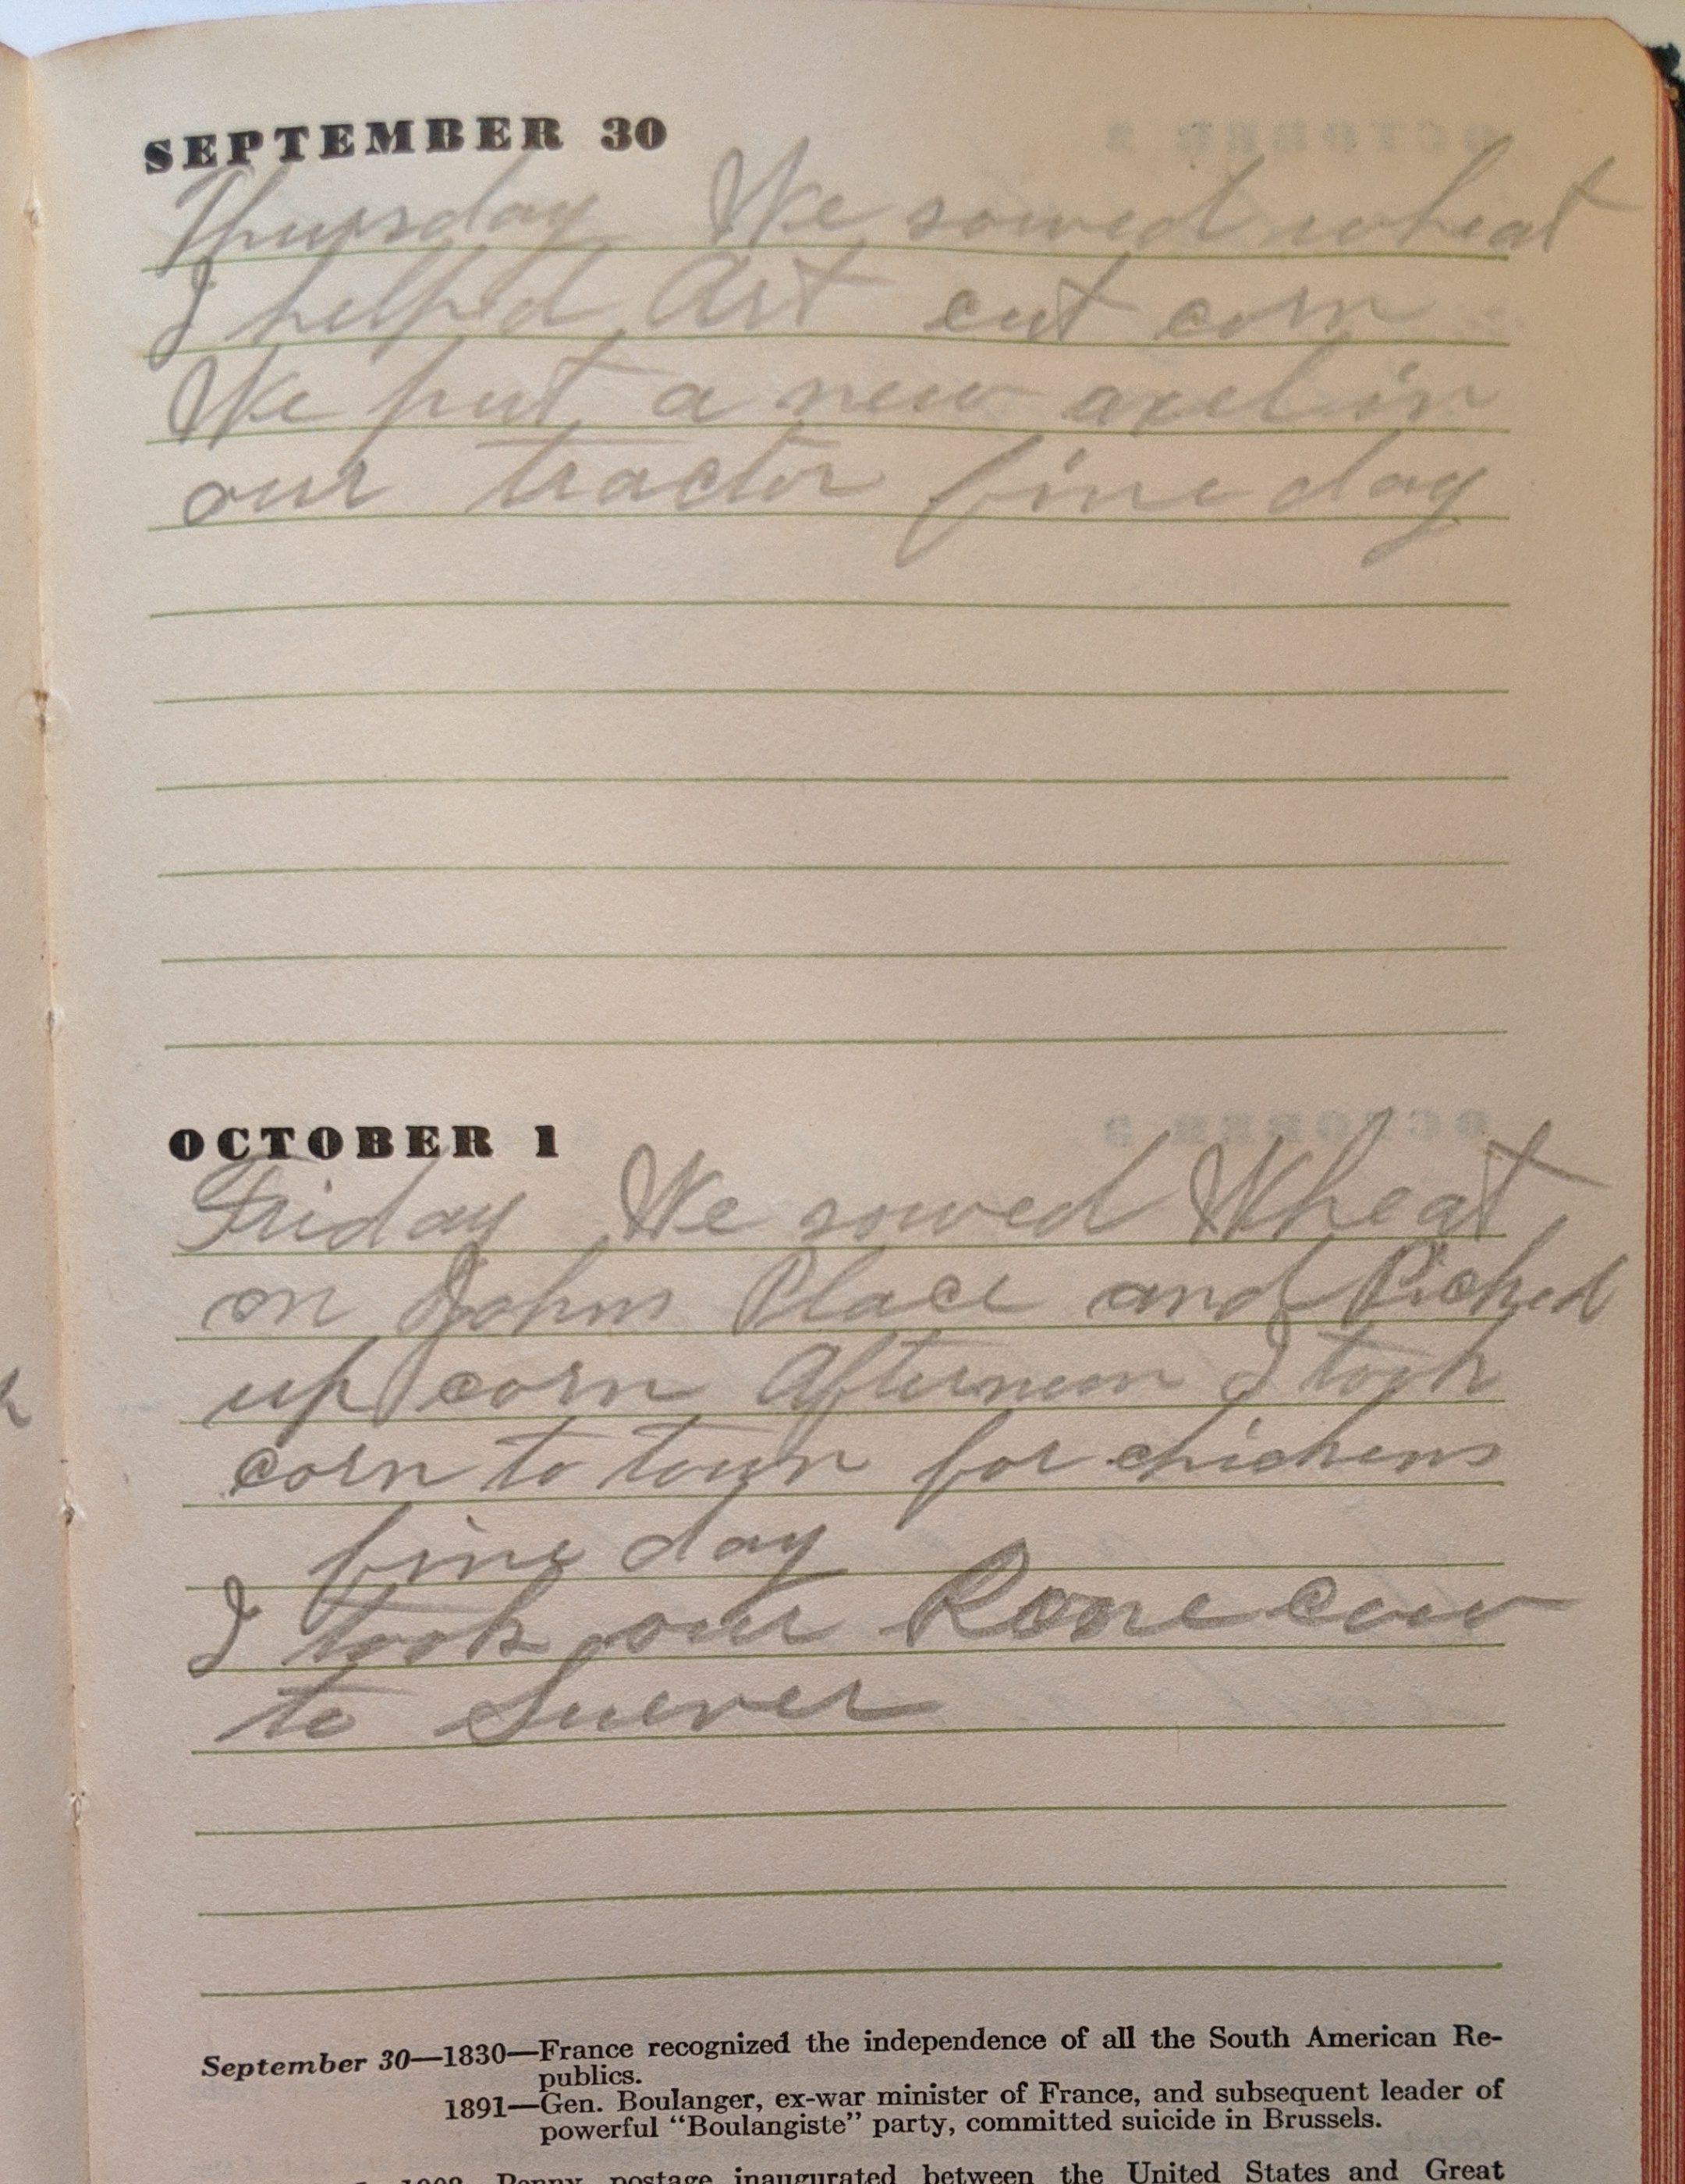 SEPTEMBER 30
Thursday We sowed wheat
I helped Art cut corn
We put a new axel in
our tractor fine day
OCTOBER 1
Friday We sowed Wheat
on Johns Place and Picked
up corn Afternoon I took
corn to town for chickens
fine day
I took our Rone cow
to Suever
September 30—1830—France recognized the independence of all the South American Re-
publics.
1891—Gen. Boulanger, ex-war minister of France, and subsequent leader of
powerful “Boulangiste” party, committed suicide in Brussels.
Penny postage inaugurated between the United States and Great